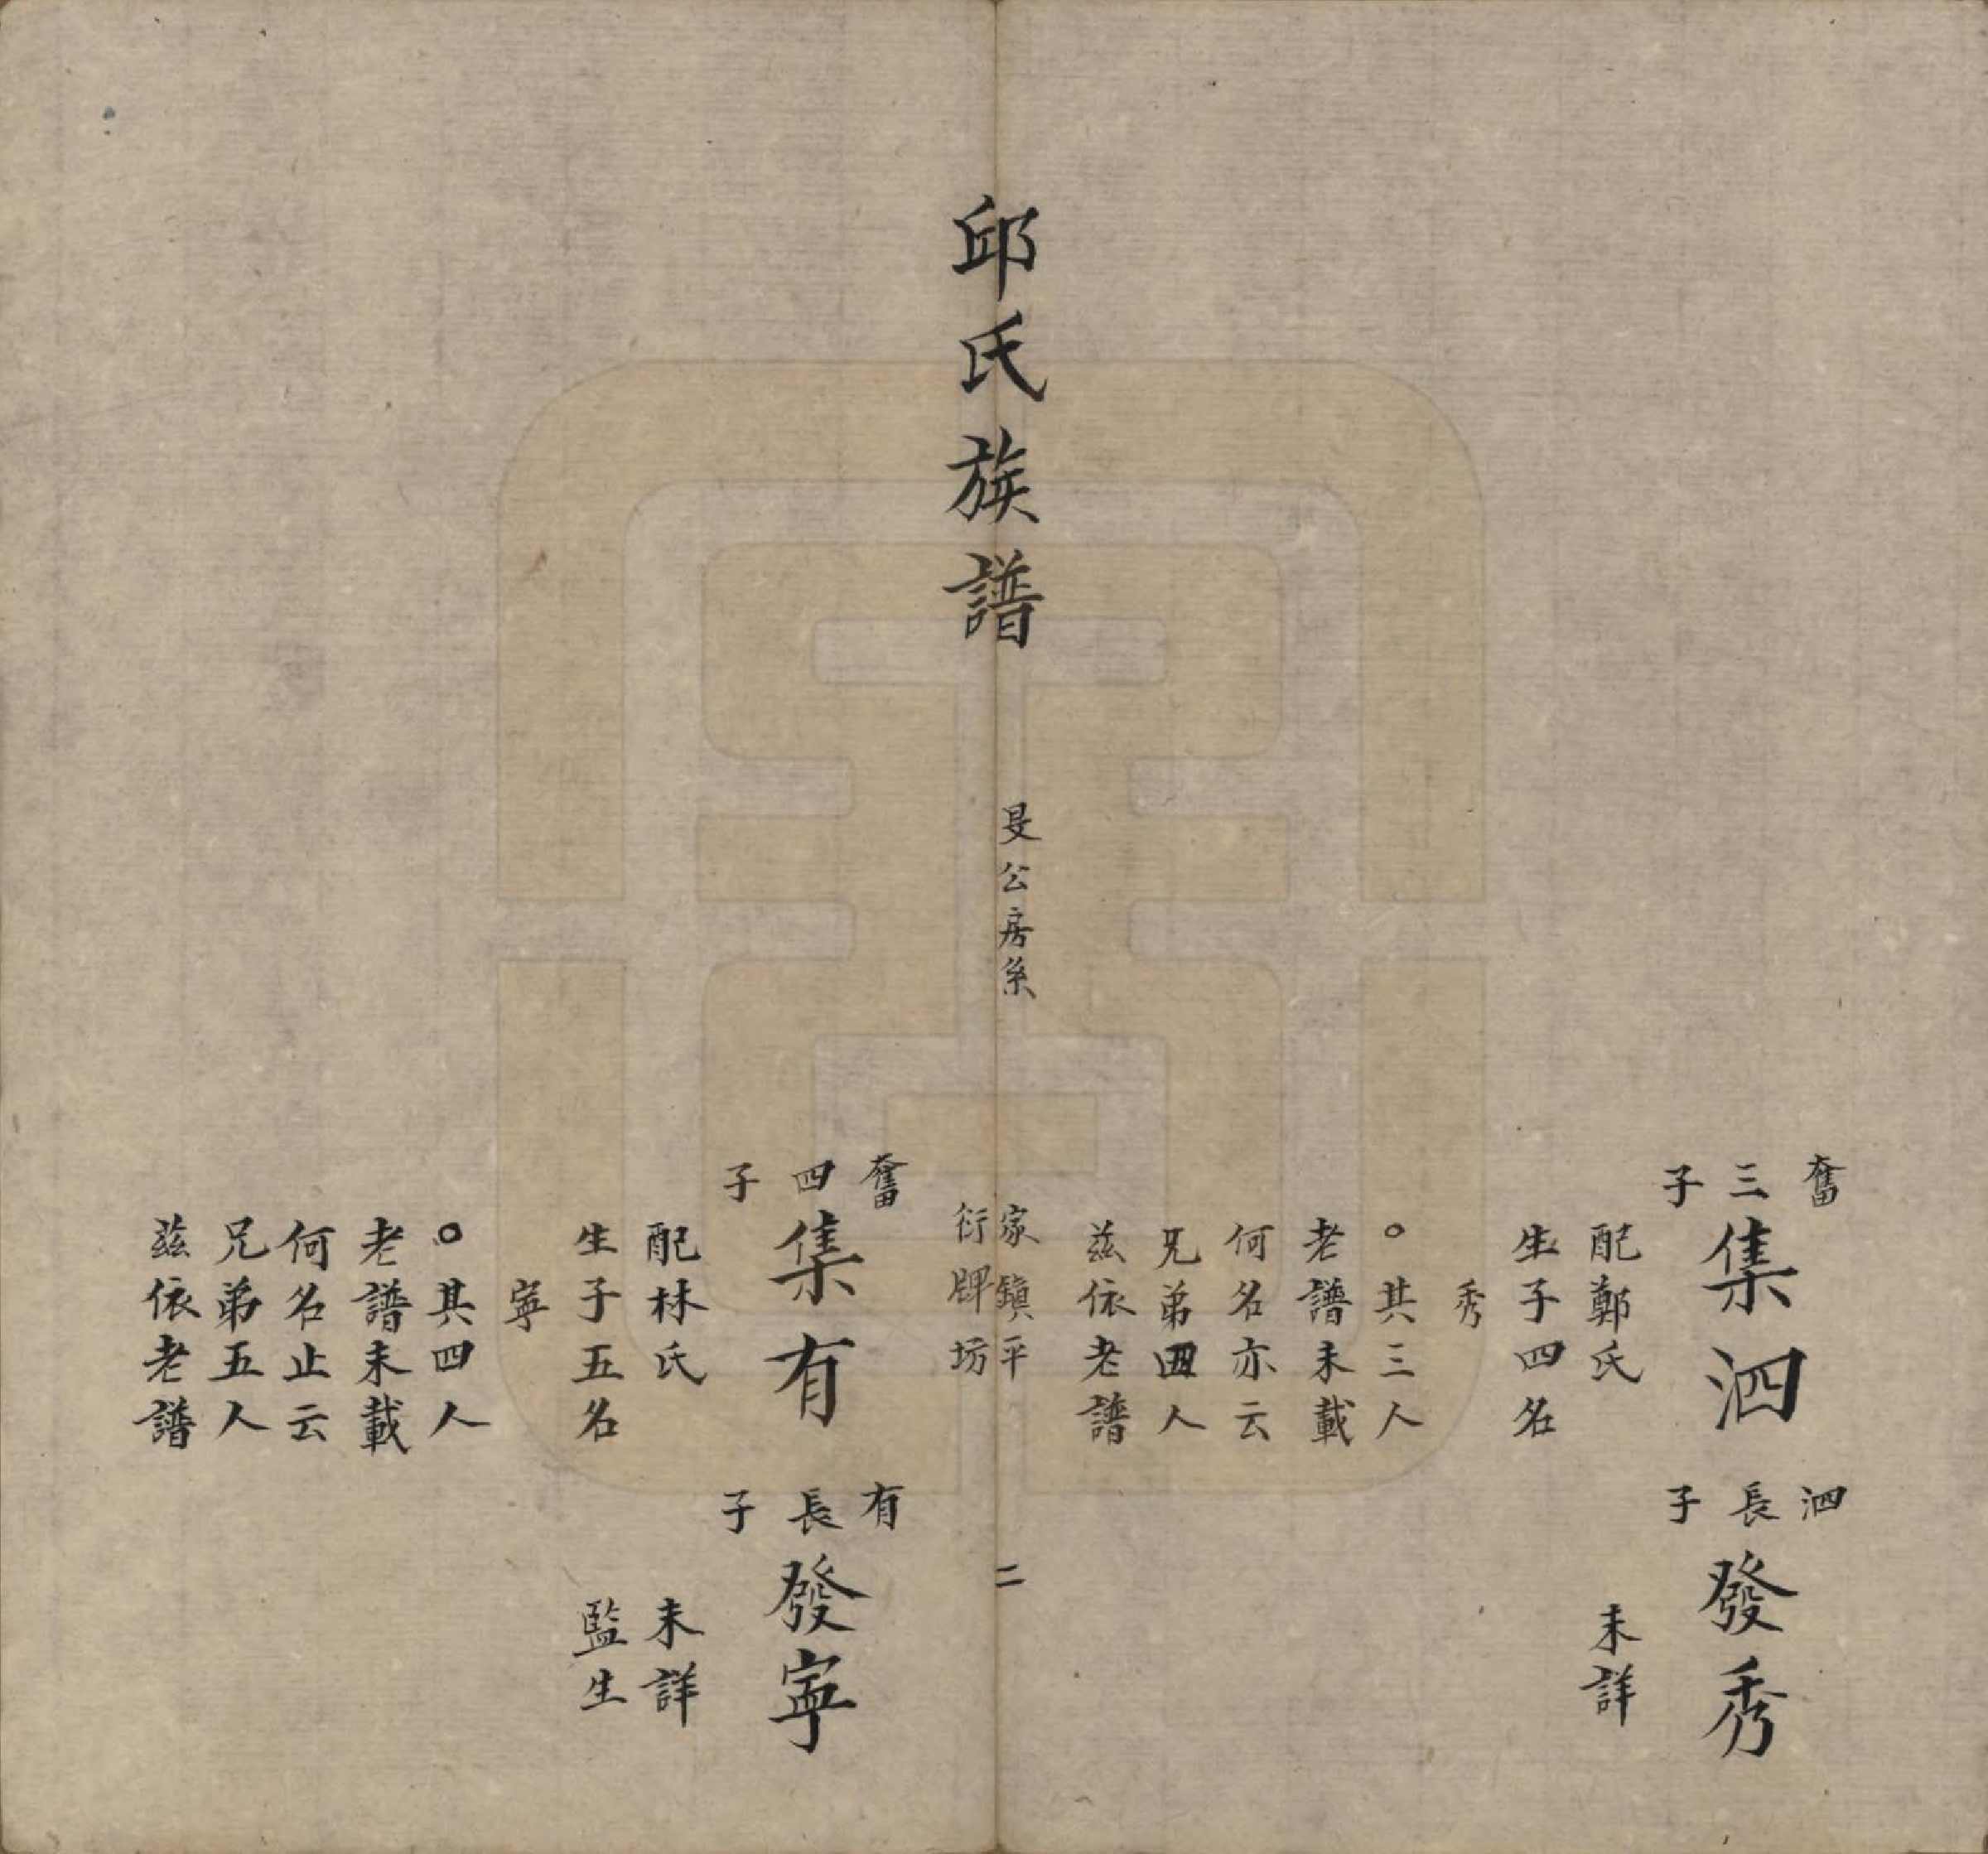 奮三子
集泗
配鄭氏
生子四名
秀
○其三人
老譜未載
何名亦云
兄弟四人
茲依老譜
泗長子
發秀
未詳
邱氏族譜
旻公房系
家鎮平
衍牌坊
二
奮四子
集有
配林氏
生子五名
寧
○其四人
老譜未載
何名止云
兄弟五人
茲依老譜
有長子
發寧
未詳
監生